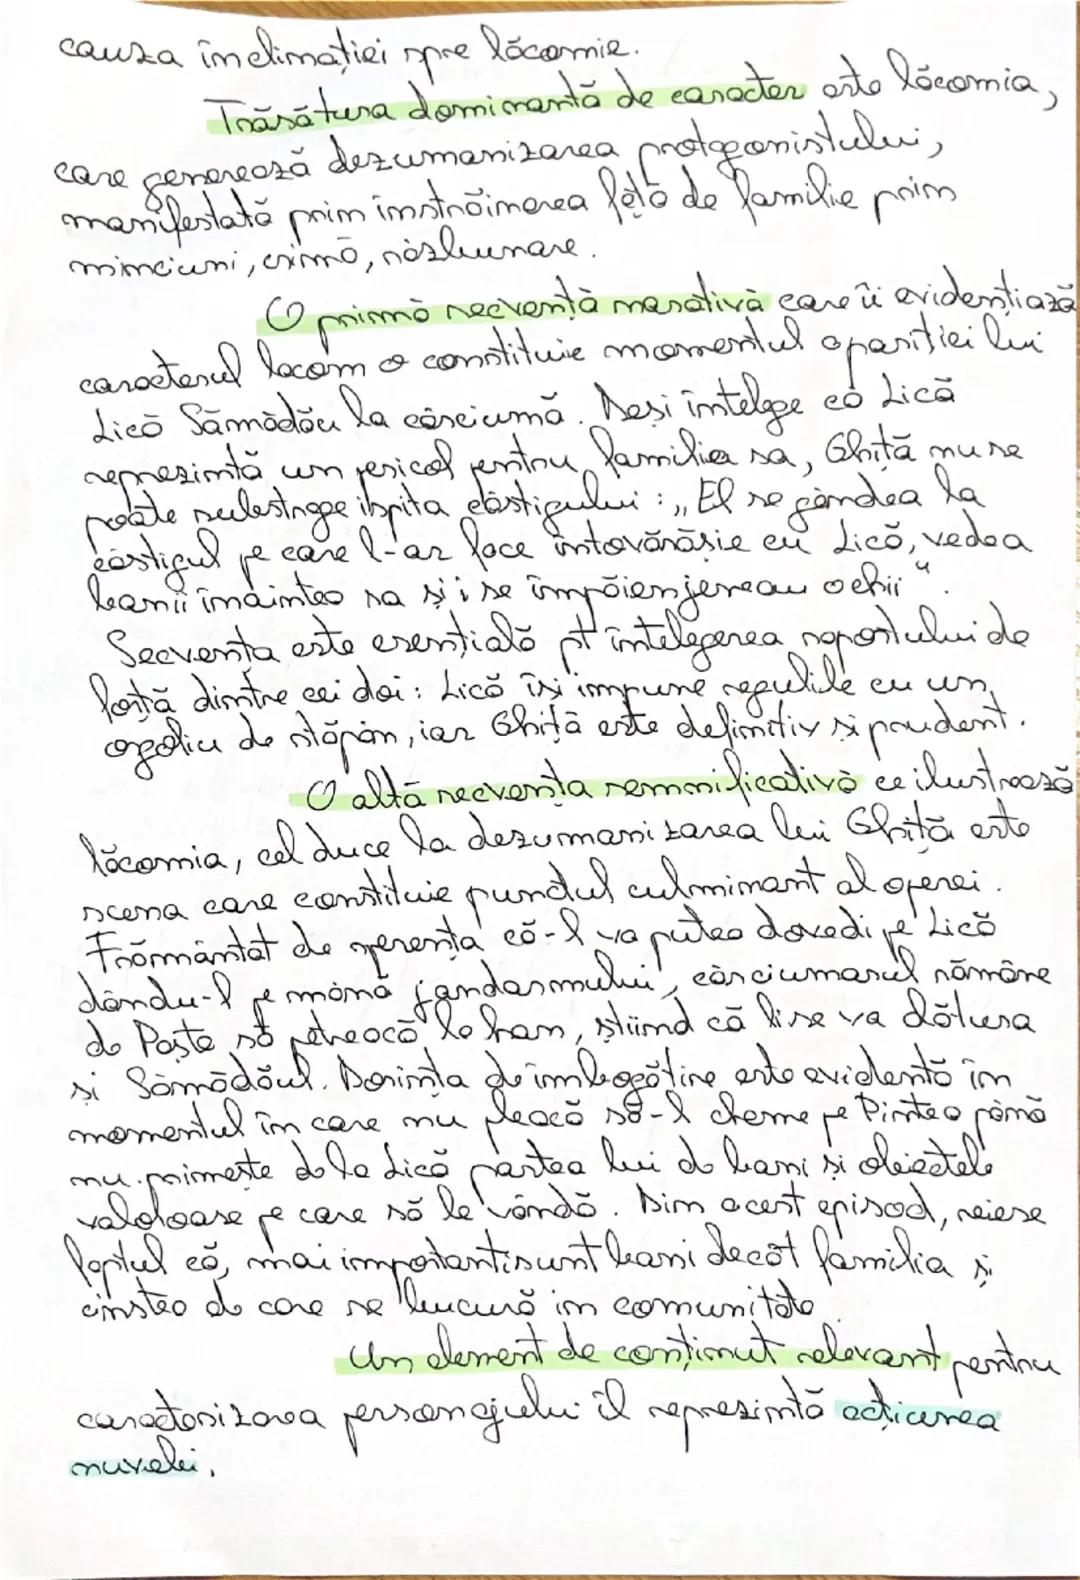 cauza înclinației spre lăcomie.
Trăsătura dominantă de caracter este lăcomia,
care generează dezumanizarea protagonistului,
manifestată prin înstrăinarea față de familie prin
minciuni, crimă, răzbunare.
O primă secvență narativă care îi evidențiază
caracterul lacom o constituie momentul apariției lui
Lică Sămădău la cârciumă. Deși întelege că Lică
reprezintă un pericol pentru familia sa, Ghiță nu se
poate sustrage ispita câștigului: „El se gândea la
câștigul pe care l-ar face întovărăsie cu Lică, vedea
banii înaintea sa și i se împăienjeneau ochii".
Secvența este esențială pt întelegerea raportului de
forță dintre cei doi: Lică își impune regulile cu un
orgoliu de stăpân, iar Ghiță este definitiv și prudent.
O altă secvența semnificativă ce ilustrează
lăcomia, ce duce la dezumanizarea lui Ghiță este
scena care constituie punctul culminant al operei.
Frământat de speranța că-l va putea dovedi pe Lică
dându-l pe mâna jandarmului, cârciumarul rămâne
de Paște să petreacă la han, știind că li se va alătura
și Sămădăul. Dorința de îmbogățire este evidentă în
momentul în care nu pleacă să-l cheme pe Pintea până
nu primește de la Lică partea lui de bani și obiectele
valoloase pe care să le vândă. Din acest episod, reiese
faptul că, mai importanti sunt bani decât familia și
cinstea de care se bucură în comunitate
Un element de conținut relevant pentru
caracterizarea personajului îl reprezintă acțiunea
nuvelei,